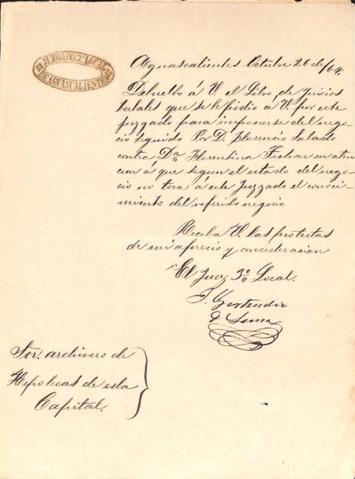 JUZGADO 3º LOCAL
AGUASCALIENTES
Aguascalientes Octubre 26 de/64.
Debuelbo á U el Libro de Juicios
balales que se le pidio a U. por este
juzgado para imponerse del nego-
cio seguido Por D. Florencio Salado
contra Dª Florentina en aten-
cion á que segun el estado del nego-
cio no toca á este Juzgado el conoci-
miento del referido negocio
Reciba U. las protestas
de mi aprecio y concideracion
El Juez 3º Local.
J.
Luna
Sor. archivero de
Hipotecas de esta
Capital.